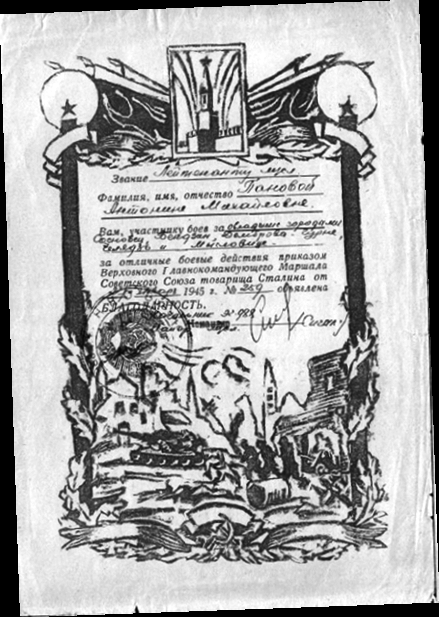 Звание Лейтенанту м/сл
Фамилия, имя, отчество Пановой
Антонине Михайловне
Вам, участнику боев за овладение городами
Сосновец, Бендзин, Домброва-Гурне
Челядзь и Мысловице
за отличные боевые действия приказом
Верховного Главнокомандующего Маршала
Советского Союза товарища Сталина от
1945 г. № 259 объявлена
БЛАГОДАРНОСТЬ.